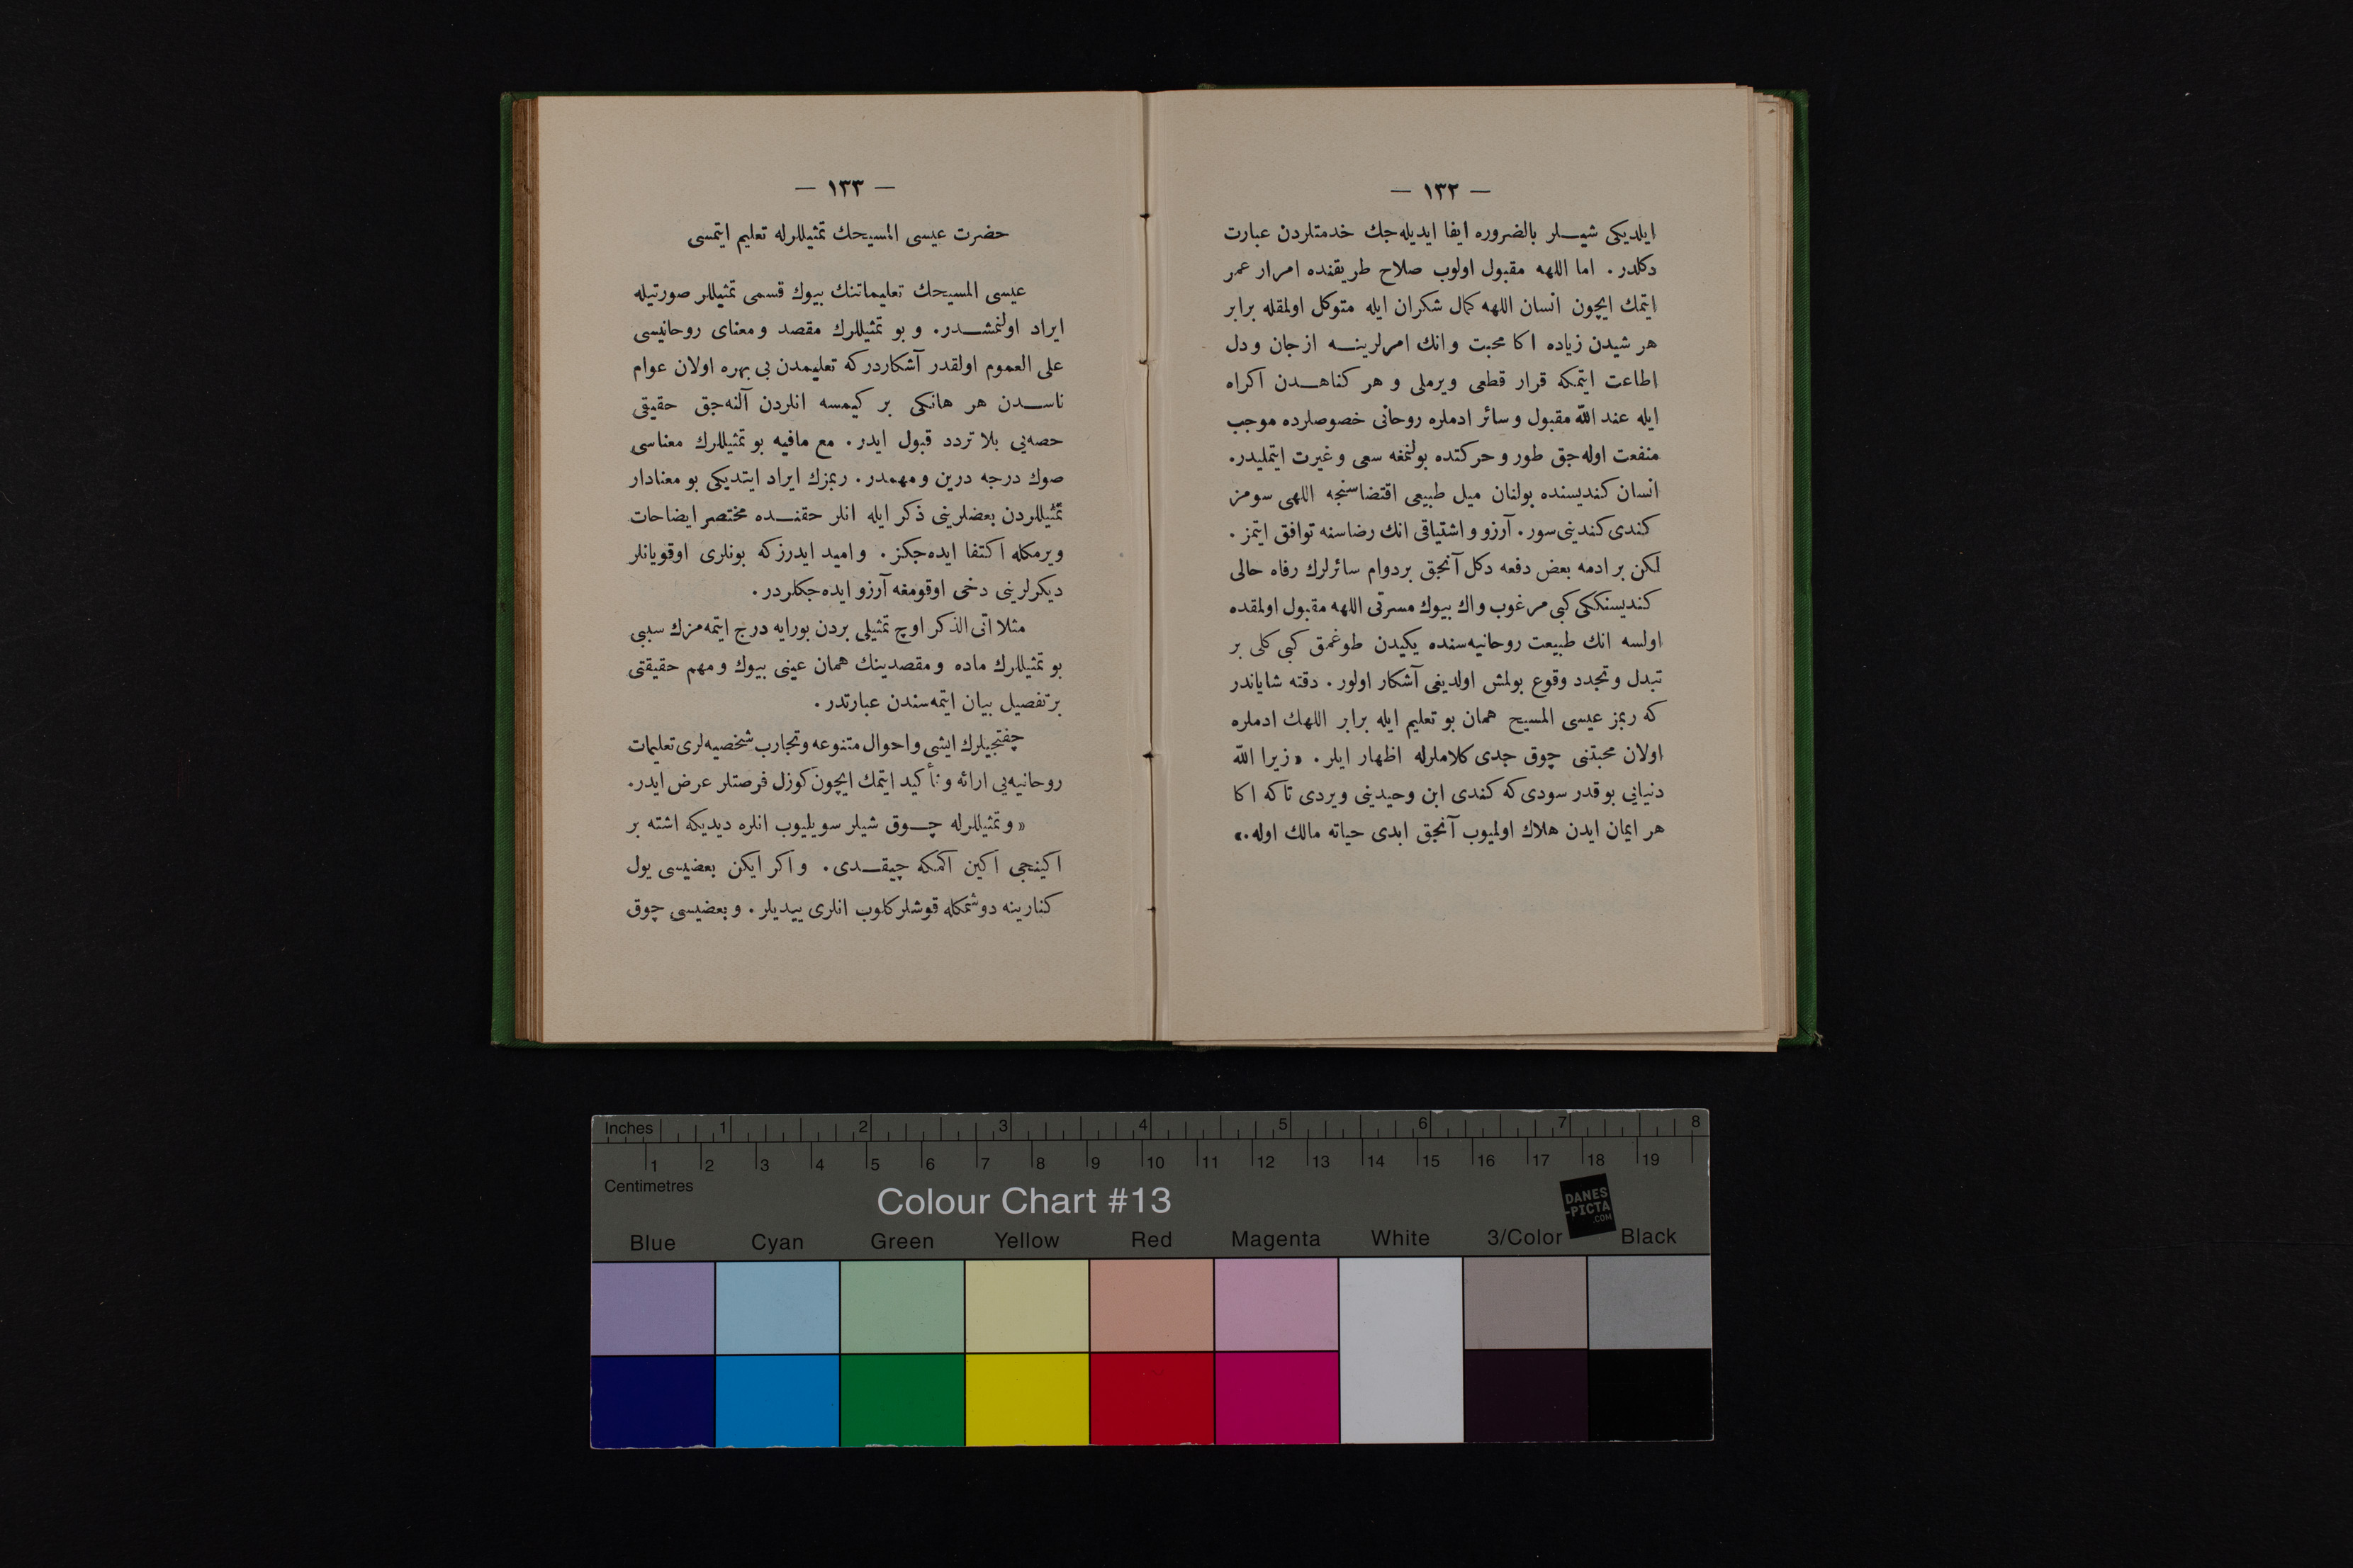 — ١٣٢ —
ایلدیکی شیــلر بالضروره ایفا ایدیله‌جك خدمتلردن عبارت
دکلدر . اما اللهه مقبول اولوب صلاح طریقنده امرار عمر
ایتمك ایچون انسان اللهه کمال شکران ایله متوکل اولمقله برابر
هر شیدن زیاده اکا محبت و انك امرلرینــه از جان و دل
اطاعت ایتمکه قرار قطعی ویرملی و هر کناهــدن اکراه
ایله عند الله مقبول و سائر ادملره روحانی خصوصلرده موجب
منفعت اوله‌جق طور و حرکتده بولنمغه سعی و غیرت ایتملیدر.
انسان کندیسنده بولنان میل طبیعی اقتضاسنجه اللهی سومز
کندی کندینی سور . آرزو و اشتیاقی انك رضاسنه توافق ایتمز .
لکن بر ادمه بعض دفعه دکل آنجق بردوام سائرلرك رفاه حالی
کندیسنککی کبی مرغوب واك بیوك مسرتی اللهه مقبول اولمقده
اولسه انك طبیعت روحانیه‌سنده یکیدن طوغمق کبی کلی بر
تبدل و تجدد وقوع بولمش اولدیغی آشکار اولور . دقته شایاندر
که ربمز عیسی المسیح همان بو تعلیم ایله برابر اللهك ادملره
اولان محبتنی چوق جدی کلاملرله اظهار ایلر . «زیرا الله
دنیایی بو قدر سودی که کندی ابن وحیدینی ویردی تا که اکا
هر ایمان ایدن هلاك اولمیوب آنجق ابدی حیاته مالك اوله.»
— ١٣٣ —
حضرت عیسی المسیحك تمثیللرله تعلیم ایتمسی
عیسی المسیحك تعلیماتنك بیوك قسمی تمثیللر صورتیله
ایراد اولنمشــدر. و بو تمثیللرك مقصد و معنای روحانیسی
علی العموم اولقدر آشکاردر که تعلیمدن بی بهره اولان عوام
ناســدن هر هانکی بر کیمسه انلردن آلنه‌جق حقیقی
حصه‌یی بلا تردد قبول ایدر. مع مافیه بو تمثیللرك معناسی
صوك درجه درین و مهمدر. ربمزك ایراد ایتدیکی بو معنادار
تمثیللردن بعضلرینی ذکر ایله انلر حقنــده مختصر ایضاحات
ویرمکله اکتفا ایده‌جکز . و امید ایدرز که بونلری اوقویانلر
دیکرلرینی دخی اوقومغه آرزو ایده‌جکلردر .
مثلا اتی الذکر اوچ تمثیلی بردن بورایه درج ایتمه‌مزك سببی
بو تمثیللرك ماده و مقصدینك همان عینی بیوك و مهم حقیقتی
بر تفصیل بیان ایتمه‌سندن عبارتدر .
چفتجیلرك ایشی و احوال متنوعه و تجارب شخصیه‌لری تعلیمات
روحانیه‌یی ارائه و تأکید ایتمك ایچون کوزل فرصتلر عرض ایدر.
«و تمثیللرله چــوق شیلر سویلیوب انلره دیدیکه اشته بر
اکینجی اکین اکمکه چیقــدی . و اکر ایکن بعضیسی یول
کنارینه دوشمکله قوشلر کلوب انلری ییدیلر . و بعضیسی چوق
Inches 1 2 3 4 5 6 7 8
1 2 3 4 5 6 7 8 9 10 11 12 13 14 15 16 17 18 19
Centimetres
Colour Chart #13
DANES
-PICTA
.COM
Blue Cyan Green Yellow Red Magenta White 3/Color Black